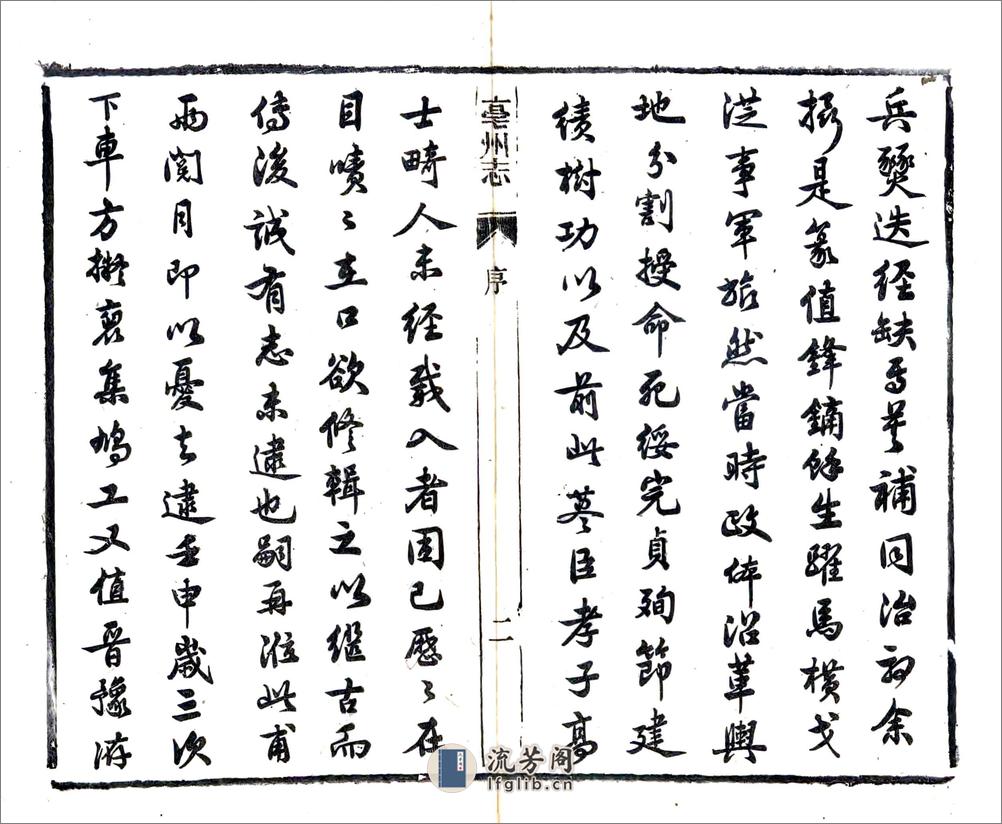 兵燹迭經缺焉莫補同治初余
攝是篆值鋒鏑餘生躍馬橫戈
從事軍旅然當時政体沿革輿
地分割授命死綏完貞殉節建
績樹功以及前此藎臣孝子高
亳州志
序
二
士畸人未經載入者固已歷〻在
目嘖〻在口欲修輯之以繼古而
傳後誠有志未逮也嗣再涖此甫
兩閱月即以憂去逮壬申歲三次
下車方擬裒集鳩工又值晉豫游
流芳阁
lfglib.cn